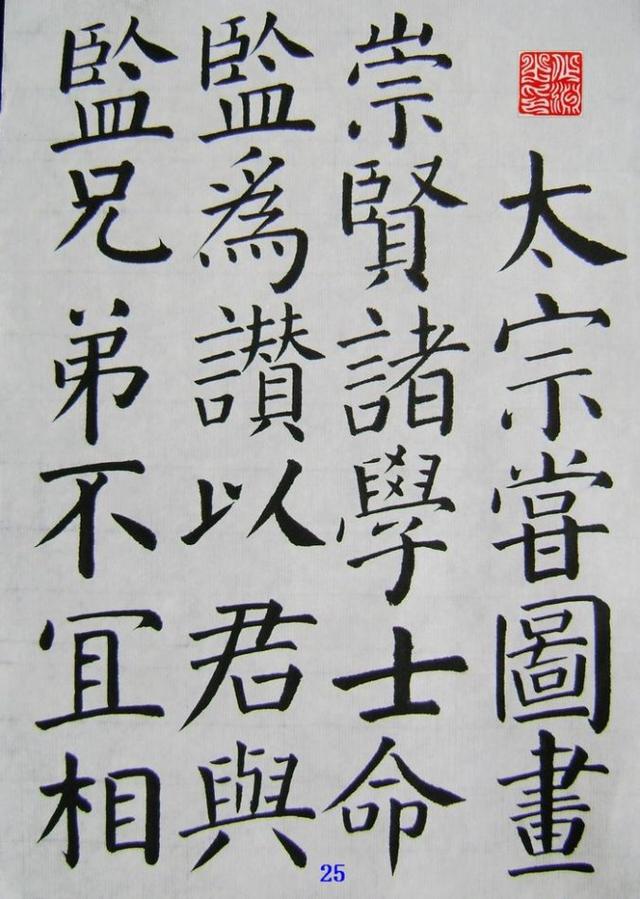 太宗嘗圖畫
崇賢諸學士命
監為讚以君與
監兄弟不冝相
25